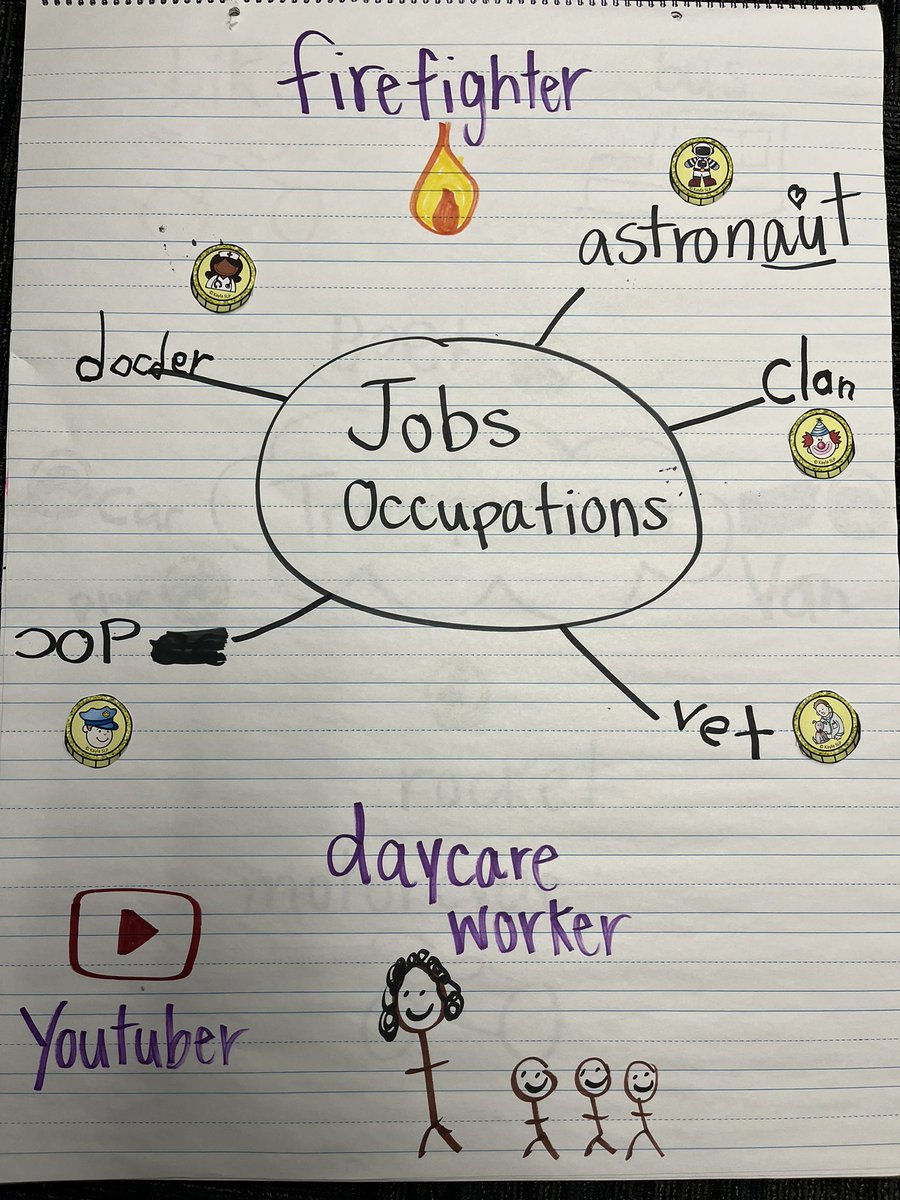 firefighter
astronaut
docter
clan
Jobs
Occupations
coP
vet
daycare
worker
Youtuber